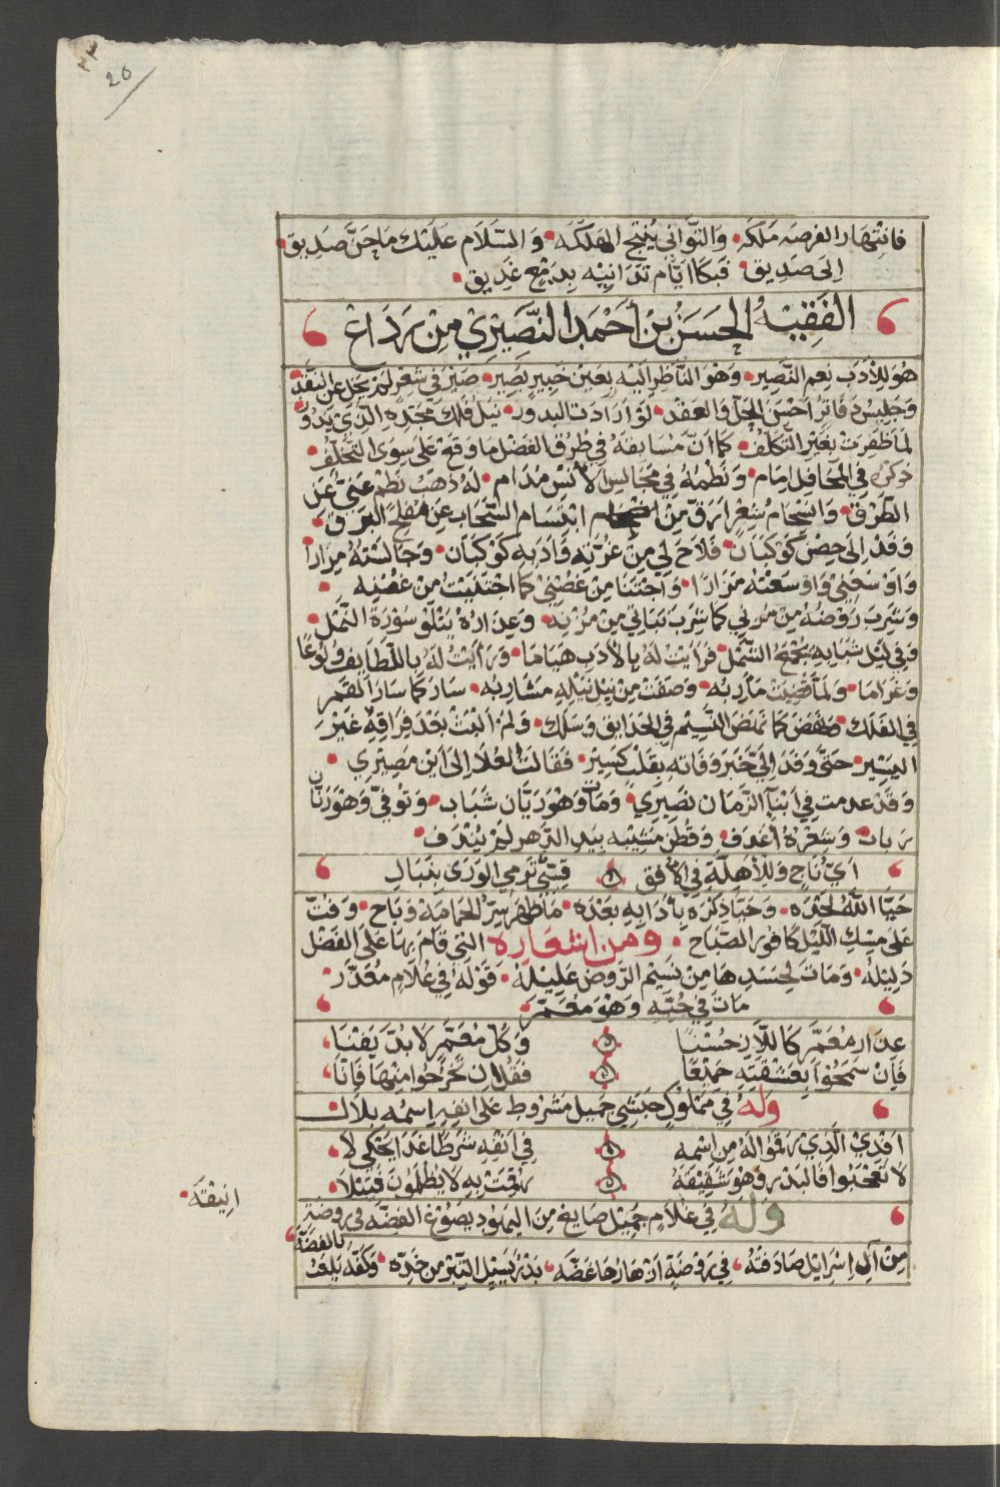 ٣٣
20
فانتهاز الفرصه ملكه والتواني ينتج الهلكه والسلام عليك ما حن صديق
الى صديق فبكا ايام تدانيه بدمع غديق
الفقيه الحسن بن أحمد النصيري من رداع
هو للأدب نعم النصير وهو الناظر اليه بعين خبير بصير صير في شعر لم يخل عن النقد
وجليس دفاتر احسن الحل والعقد لو ارادت البدور نيل فلك مجده الذي يدور
لما ظفرت بغير التكلف كما ان مسابقه في طرق الفضل ما وقع على سوى التخلف
ذكره في المحافل امام ونظمه في مجالس الأنس مدام له ذهب نظم غني عن
الطرق وانسجام شعر ارق من ابتسام السحاب عن مفلج البرق
وفد إلى حصن كوكبان فلاح لي من غرته وادبه كوكبان وجالسته مرارا
واوسعني واوسعته مزارا واجتنا من غصني كما اجتنيت من غصنه
وشرب روضه من مزني كما شرب نباتي من مزنه وعذاره يتلو سورة النمل
وفي ليل شبابه يجمع الشمل فرايت له بالأدب هياما ورأيت له باللطايف ولوعا
وغراما ولما قضيت مآربه وصفت من نيل نيله مشاربه سار كما سار القمر
في الفلك ونهض كما نهض النسيم في الحدايق وسلك ولم البث بعد فراقه غير
اليسير حتى وفد الي خبر وفاته بقلب كسير فقالت العلا إلى اين مصيري
وقد عدمت في ابنآ الزمان نصيري ومات وهو ريان شباب وتوفي وهو رنان
رباب وشعره أغدف وقطن مشيبه بيد الدهر لم يندف
اي ناج وللأهلة في الأفق قسي ترمي الورى بنبال
حيا الله لحده وحيا ذكره بأدابه بعده ما ظهر سر الحمامة وباح وفت
على مسك الليل كافور الصباح ومن اشعاره التي قام بها على الفضل
دليله ومات لحسدها من نسيم الروض عليله قوله في غلام معذر
مات في حبه وهو معمر
عذار معمر كاللاز حسنا وكل معمر لا بد يفنا
فان سمحوا بعشقته جميعا فقل ان تخرجوا منها فانا
وله في مملوك حبشي جميل مشروط على انفه اسمه بلال
افدي الذي رقموا له من اسمه في انفه شرطا غدا يحكي لا
لا تعجبوا فالبدر وهو شقيقه رقمت به لا يظلمون فتيلا
وله في غلام جميل صايغ من اليهود يصوغ الفضه في روضة
انيقة
من آل اسرايل صادفته في روضة ازهارها غضه بدر يسيل التبر من خده وكفه يلعب
بالفضة